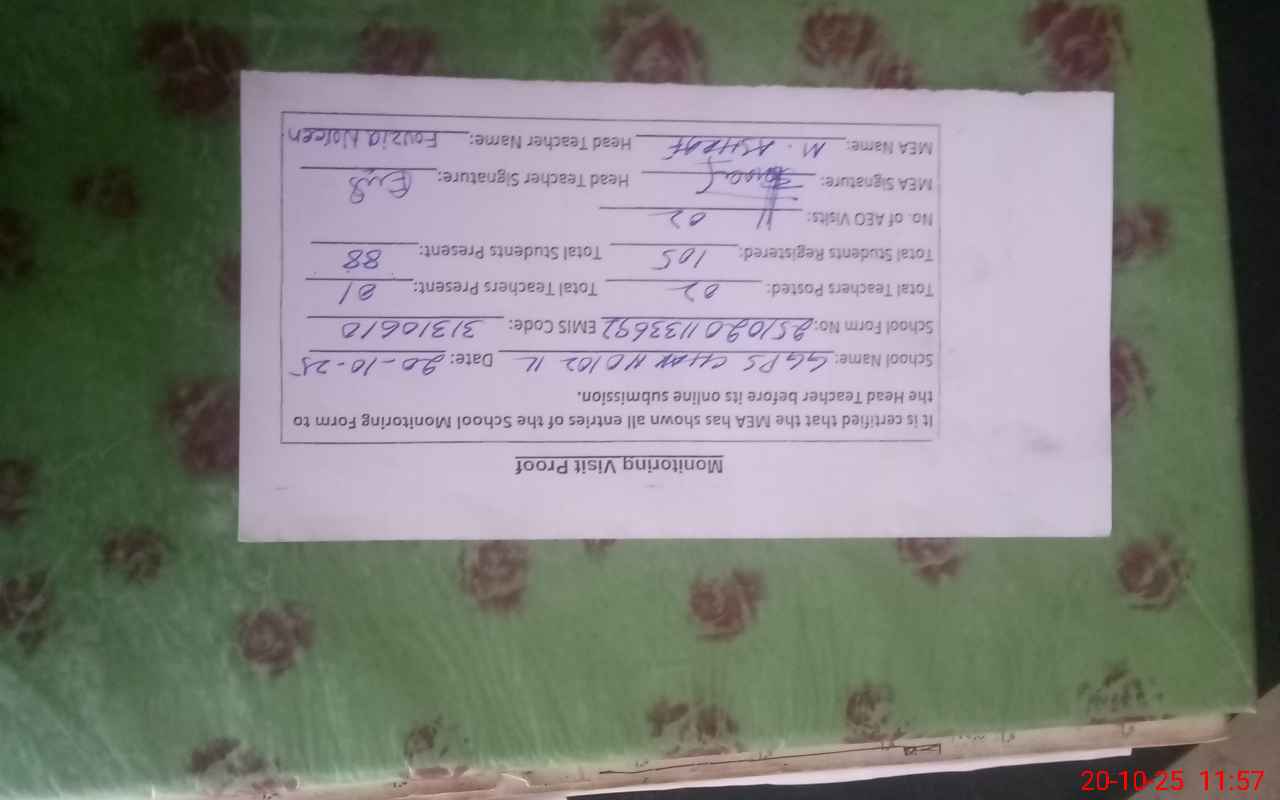 Monitoring Visit Proof
It is certified that the MEA has shown all entries of the School Monitoring Form to
the Head Teacher before its online submission.
School Name: GGPS CHAK NO 102 1L Date: 20-10-25
School Form No: 2510201133692 EMIS Code: 31310610
Total Teachers Posted: 02 Total Teachers Present: 01
Total Students Registered: 105 Total Students Present: 88
No. of AEO Visits: 02
MEA Signature: Head Teacher Signature:
MEA Name: M. ASHRAF Head Teacher Name: Fouzia Noreen
20-10-25 11:57